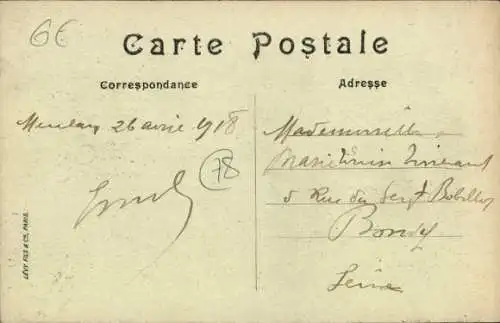 6€
Carte Postale
Correspondance
Adresse
Meulan 26 avril 1918
78
Mademoiselle
Marie Louise
5 Rue du Sergt Bobillot
Bondy
Seine
LÉVY FILS & Cie, PARIS